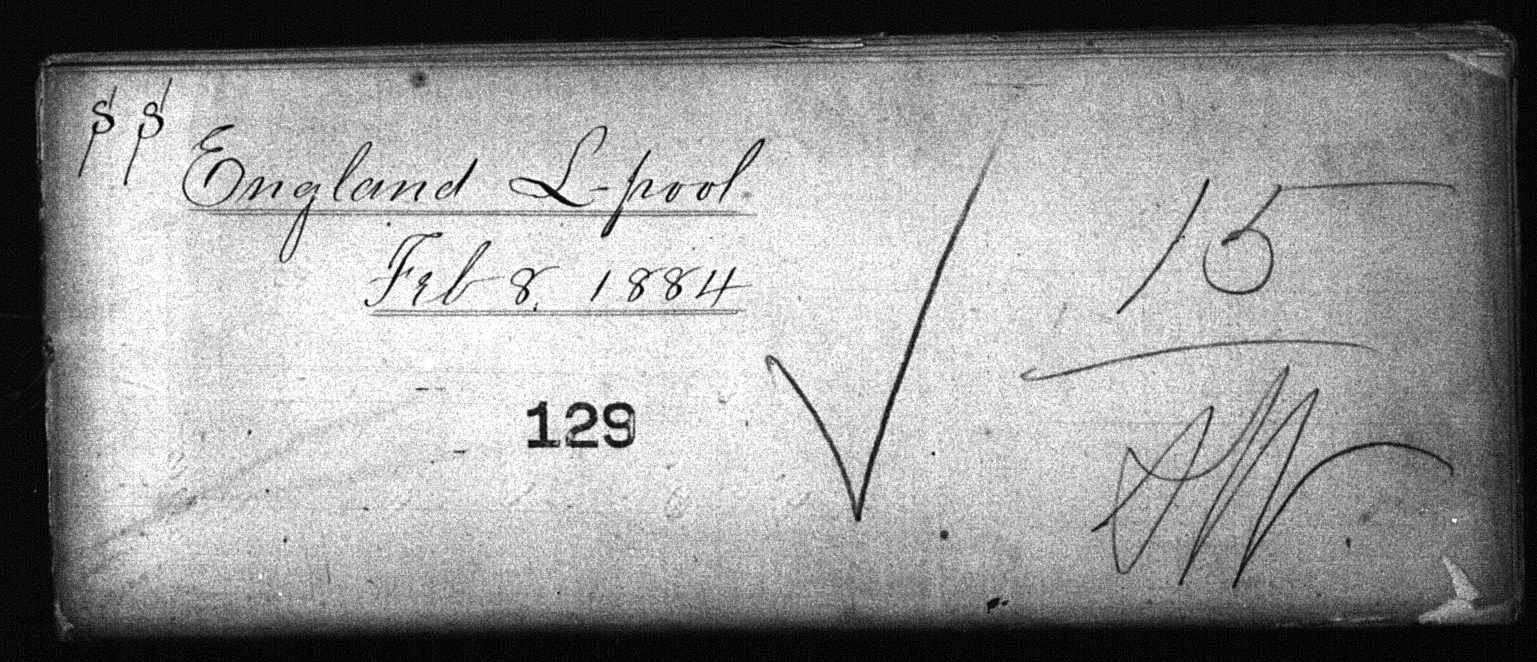 SS England L-pool
Feb 8. 1884
129
15